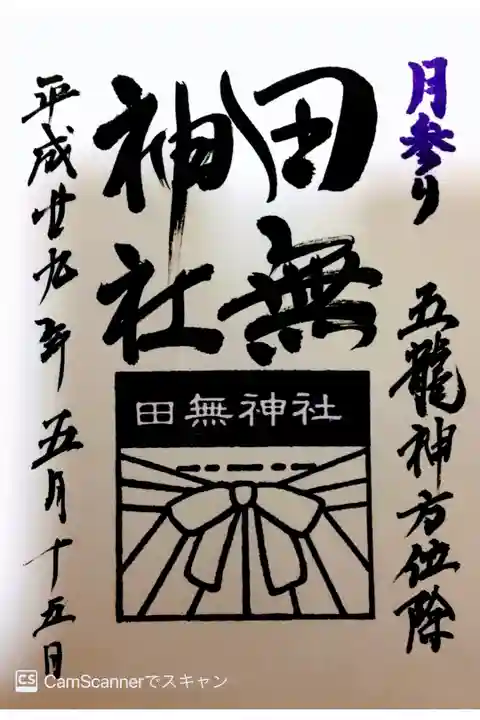 月参り
五龍神方位除
田無
神社
田無神社
平成廿九年五月十五日
CS CamScannerでスキャン